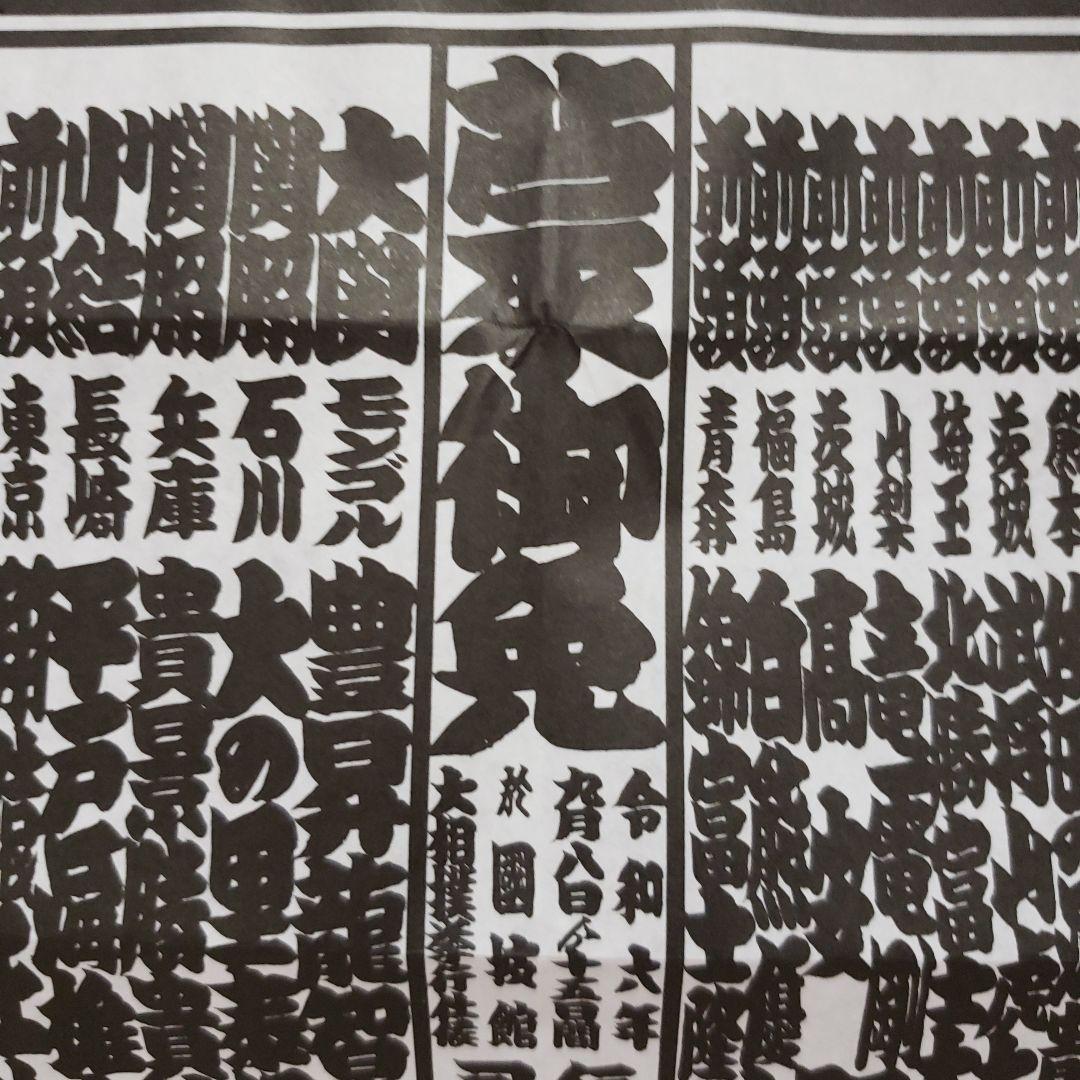 前頭 茨城 武将山
前頭 埼玉 北勝富士
前頭 山梨 竜電剛
前頭 茨城 高安
前頭 福島 白熊優
前頭 青森 錦富士隆
蒙御免
令和六年
九月八日ヨリ十五日間
於國技館
大相撲挙行仕候
大関 モンゴル 豊昇龍智
関脇 石川 大の里泰
関脇 兵庫 貴景勝貴
小結 長崎 平戸海雄
前頭 東京